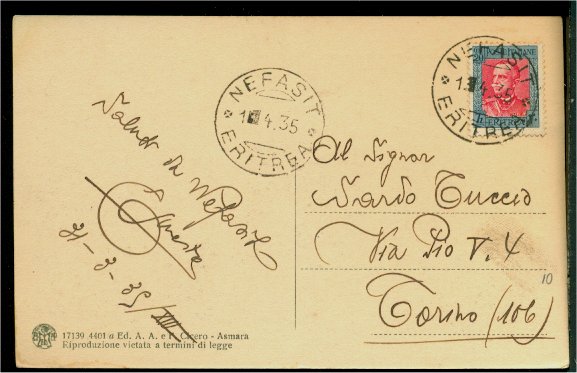 NEFASIT
4.35
ERITREA
NEFASIT
1 4.35
ERITREA
Saluti da Nefasit
31-3-35/XIII
Al Signor
Sardo Tuccio
Via Pio V. 4
Torino (106)
10
17139 4401 a Ed. A. A. e F. Cicero - Asmara
Riproduzione vietata a termini di legge